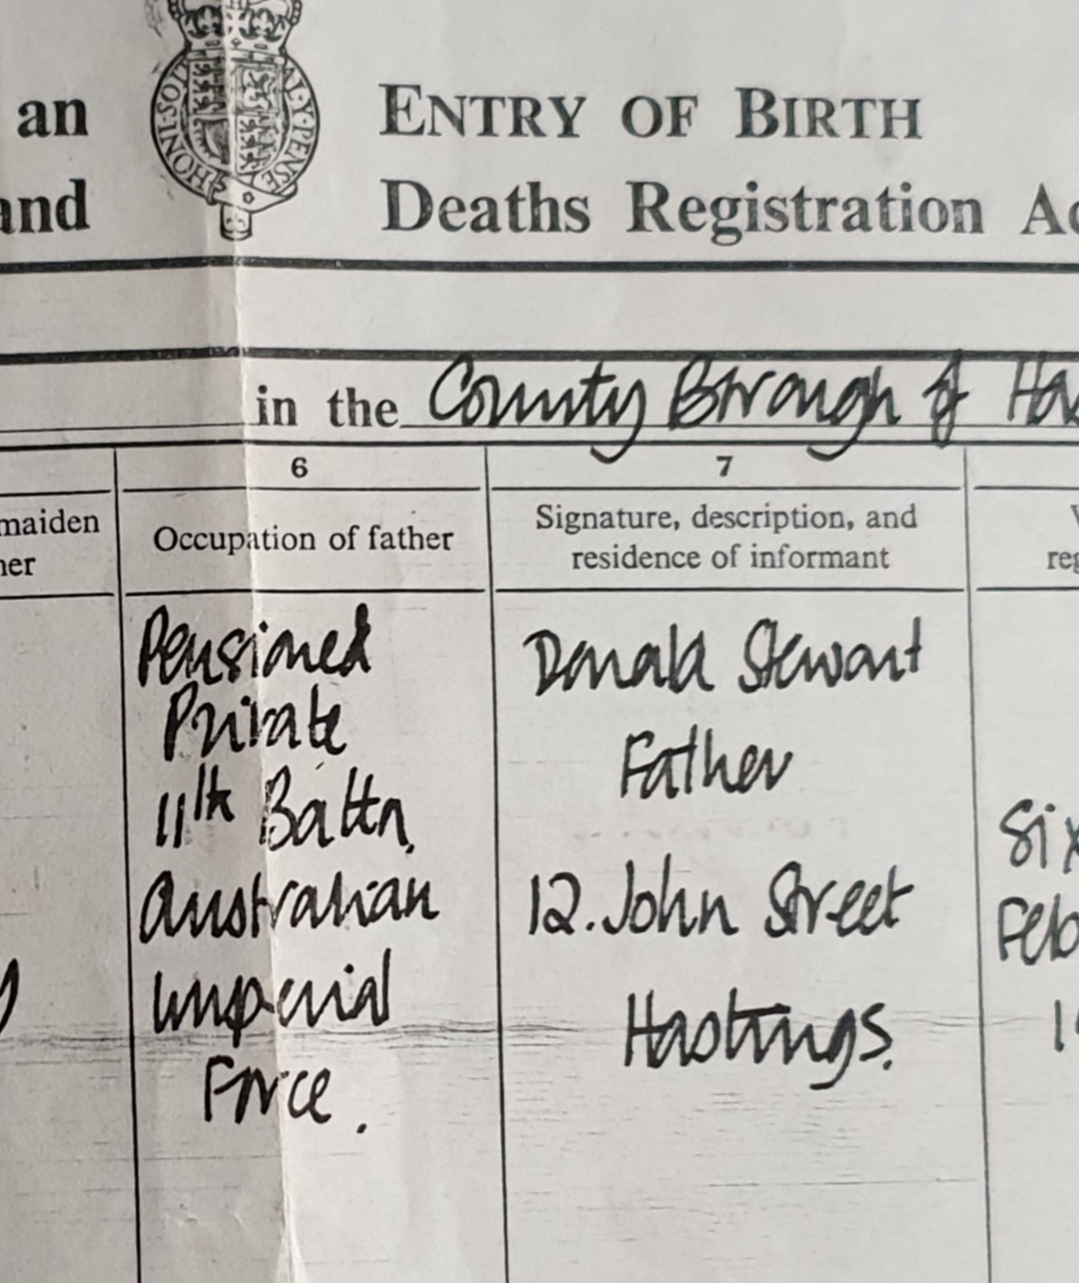 HONI·SOIT
AL·Y·PENSE
an ENTRY OF BIRTH
and Deaths Registration Ac
in the County Borough of Has
6 7
maiden Occupation of father Signature, description, and
her residence of informant reg
Pensioned Donald Stewart
Private Father
11th Battn, Six
Australian 12. John Street Feb
Imperial Hastings. 19
Force.